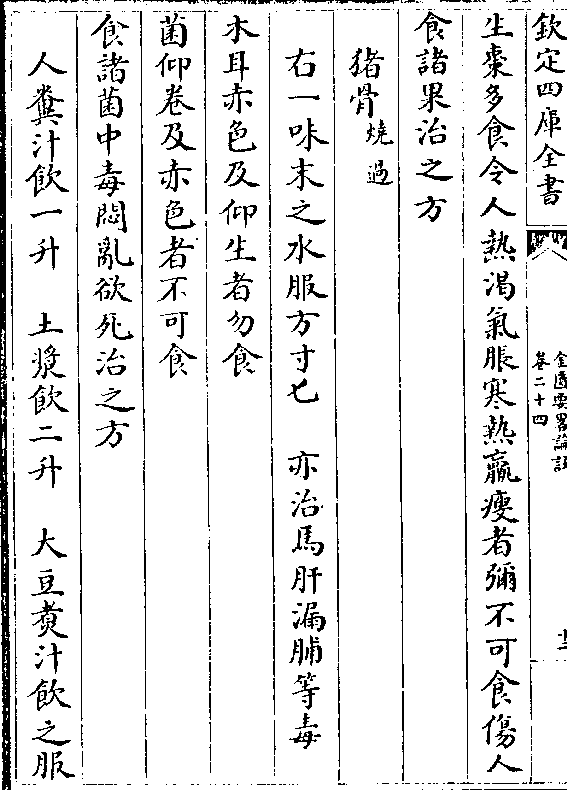 欽定四庫全書
金匱要畧論註
卷二十四
十二
生棗多食令人熱渴氣脹寒熱羸瘦者彌不可食傷人
食諸果治之方
猪骨燒過
右一味末之水服方寸匕　亦治馬肝漏脯等毒
木耳赤色及仰生者勿食
菌仰卷及赤色者不可食
食諸菌中毒悶亂欲死治之方
人糞汁飲一升　土漿飲二升　大豆煑汁飲之服